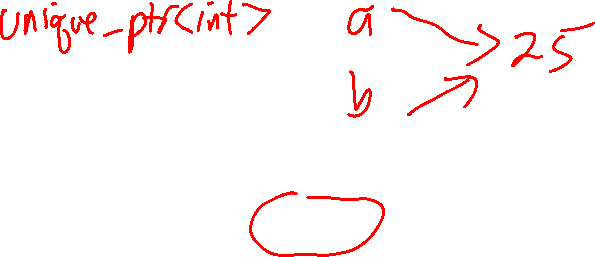 unique_ptr<int> a 25
b